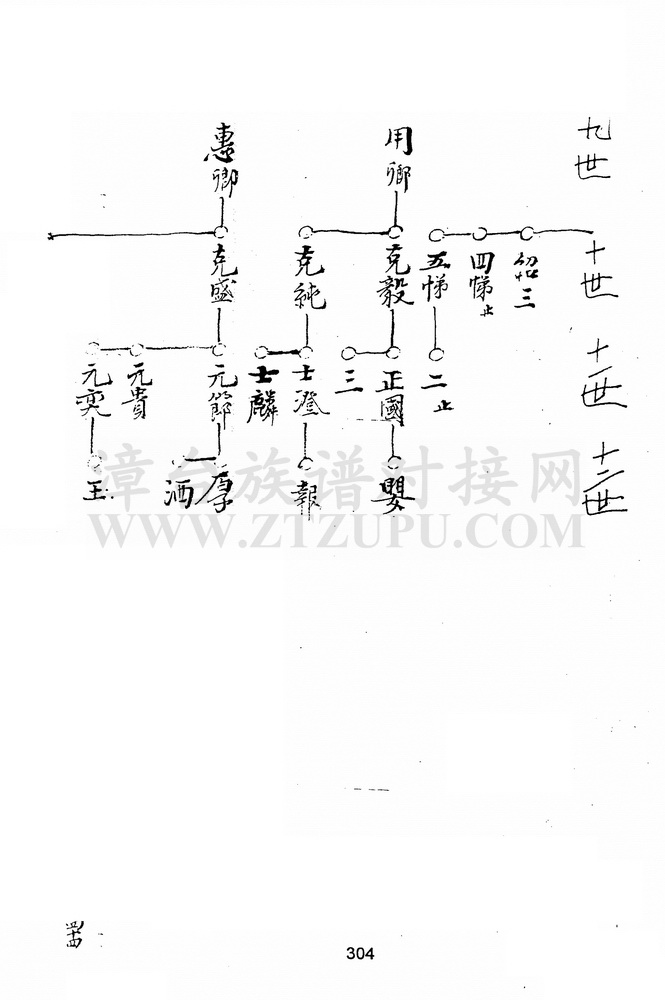 九世
十世
十一世
十二世
三
四悌止
五悌
二止
用卿
克毅
正國
嬰
三
克純
士澄
報
士麟
惠卿
克盛
元節
厚
洒
元貴
元奕
王
漳台族谱对接网
WWW.ZTZUPU.COM
304